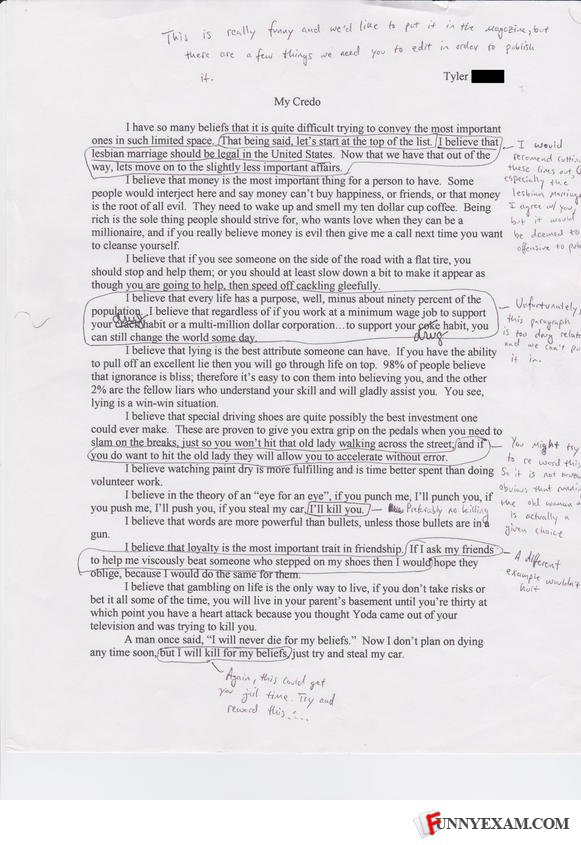 This is really funny and we'd like to put it in the magazine, but
there are a few things we need you to edit in order to publish
it.
Tyler
My Credo
I have so many beliefs that it is quite difficult trying to convey the most important
ones in such limited space. That being said, let's start at the top of the list. I believe that
lesbian marriage should be legal in the United States. Now that we have that out of the
way, lets move on to the slightly less important affairs.
I would
recomend cutting
these lines out,
especially the
lesbian marriage
I agree w/ you,
but it would
be deemed to
offensive to
I believe that money is the most important thing for a person to have. Some
people would interject here and say money can't buy happiness, or friends, or that money
is the root of all evil. They need to wake up and smell my ten dollar cup coffee. Being
rich is the sole thing people should strive for, who wants love when they can be a
millionaire, and if you really believe money is evil then give me a call next time you want
to cleanse yourself.
I believe that if you see someone on the side of the road with a flat tire, you
should stop and help them; or you should at least slow down a bit to make it appear as
though you are going to help, then speed off cackling gleefully.
I believe that every life has a purpose, well, minus about ninety percent of the
population. I believe that regardless of if you work at a minimum wage job to support
drug
your crack habit or a multi-million dollar corporation…to support your coke habit, you
drug
can still change the world some day.
Unfortunately,
this paragraph
is too drug related
and we can't put
it in.
I believe that lying is the best attribute someone can have. If you have the ability
to pull off an excellent lie then you will go through life on top. 98% of people believe
that ignorance is bliss; therefore it's easy to con them into believing you, and the other
2% are the fellow liars who understand your skill and will gladly assist you. You see,
lying is a win-win situation.
I believe that special driving shoes are quite possibly the best investment one
could ever make. These are proven to give you extra grip on the pedals when you need to
slam on the breaks, just so you won't hit that old lady walking across the street; and if
you do want to hit the old lady they will allow you to accelerate without error.
You might try
to re word this
So it is not
obvious that
the old woman
is actually a
given choice
I believe watching paint dry is more fulfilling and is time better spent than doing
volunteer work.
I believe in the theory of an "eye for an eye", if you punch me, I'll punch you, if
you push me, I'll push you, if you steal my car, I'll kill you. Preferably no killing
I believe that words are more powerful than bullets, unless those bullets are in a
gun.
I believe that loyalty is the most important trait in friendship. If I ask my friends
to help me viscously beat someone who stepped on my shoes then I would hope they
oblige, because I would do the same for them.
A different
example wouldn't
hurt
I believe that gambling on life is the only way to live, if you don't take risks or
bet it all some of the time, you will live in your parent's basement until you're thirty at
which point you have a heart attack because you thought Yoda came out of your
television and was trying to kill you.
A man once said, "I will never die for my beliefs." Now I don't plan on dying
any time soon, but I will kill for my beliefs, just try and steal my car.
Again, this could get
you jail time. Try and
reword this....
FUNNYEXAM.COM